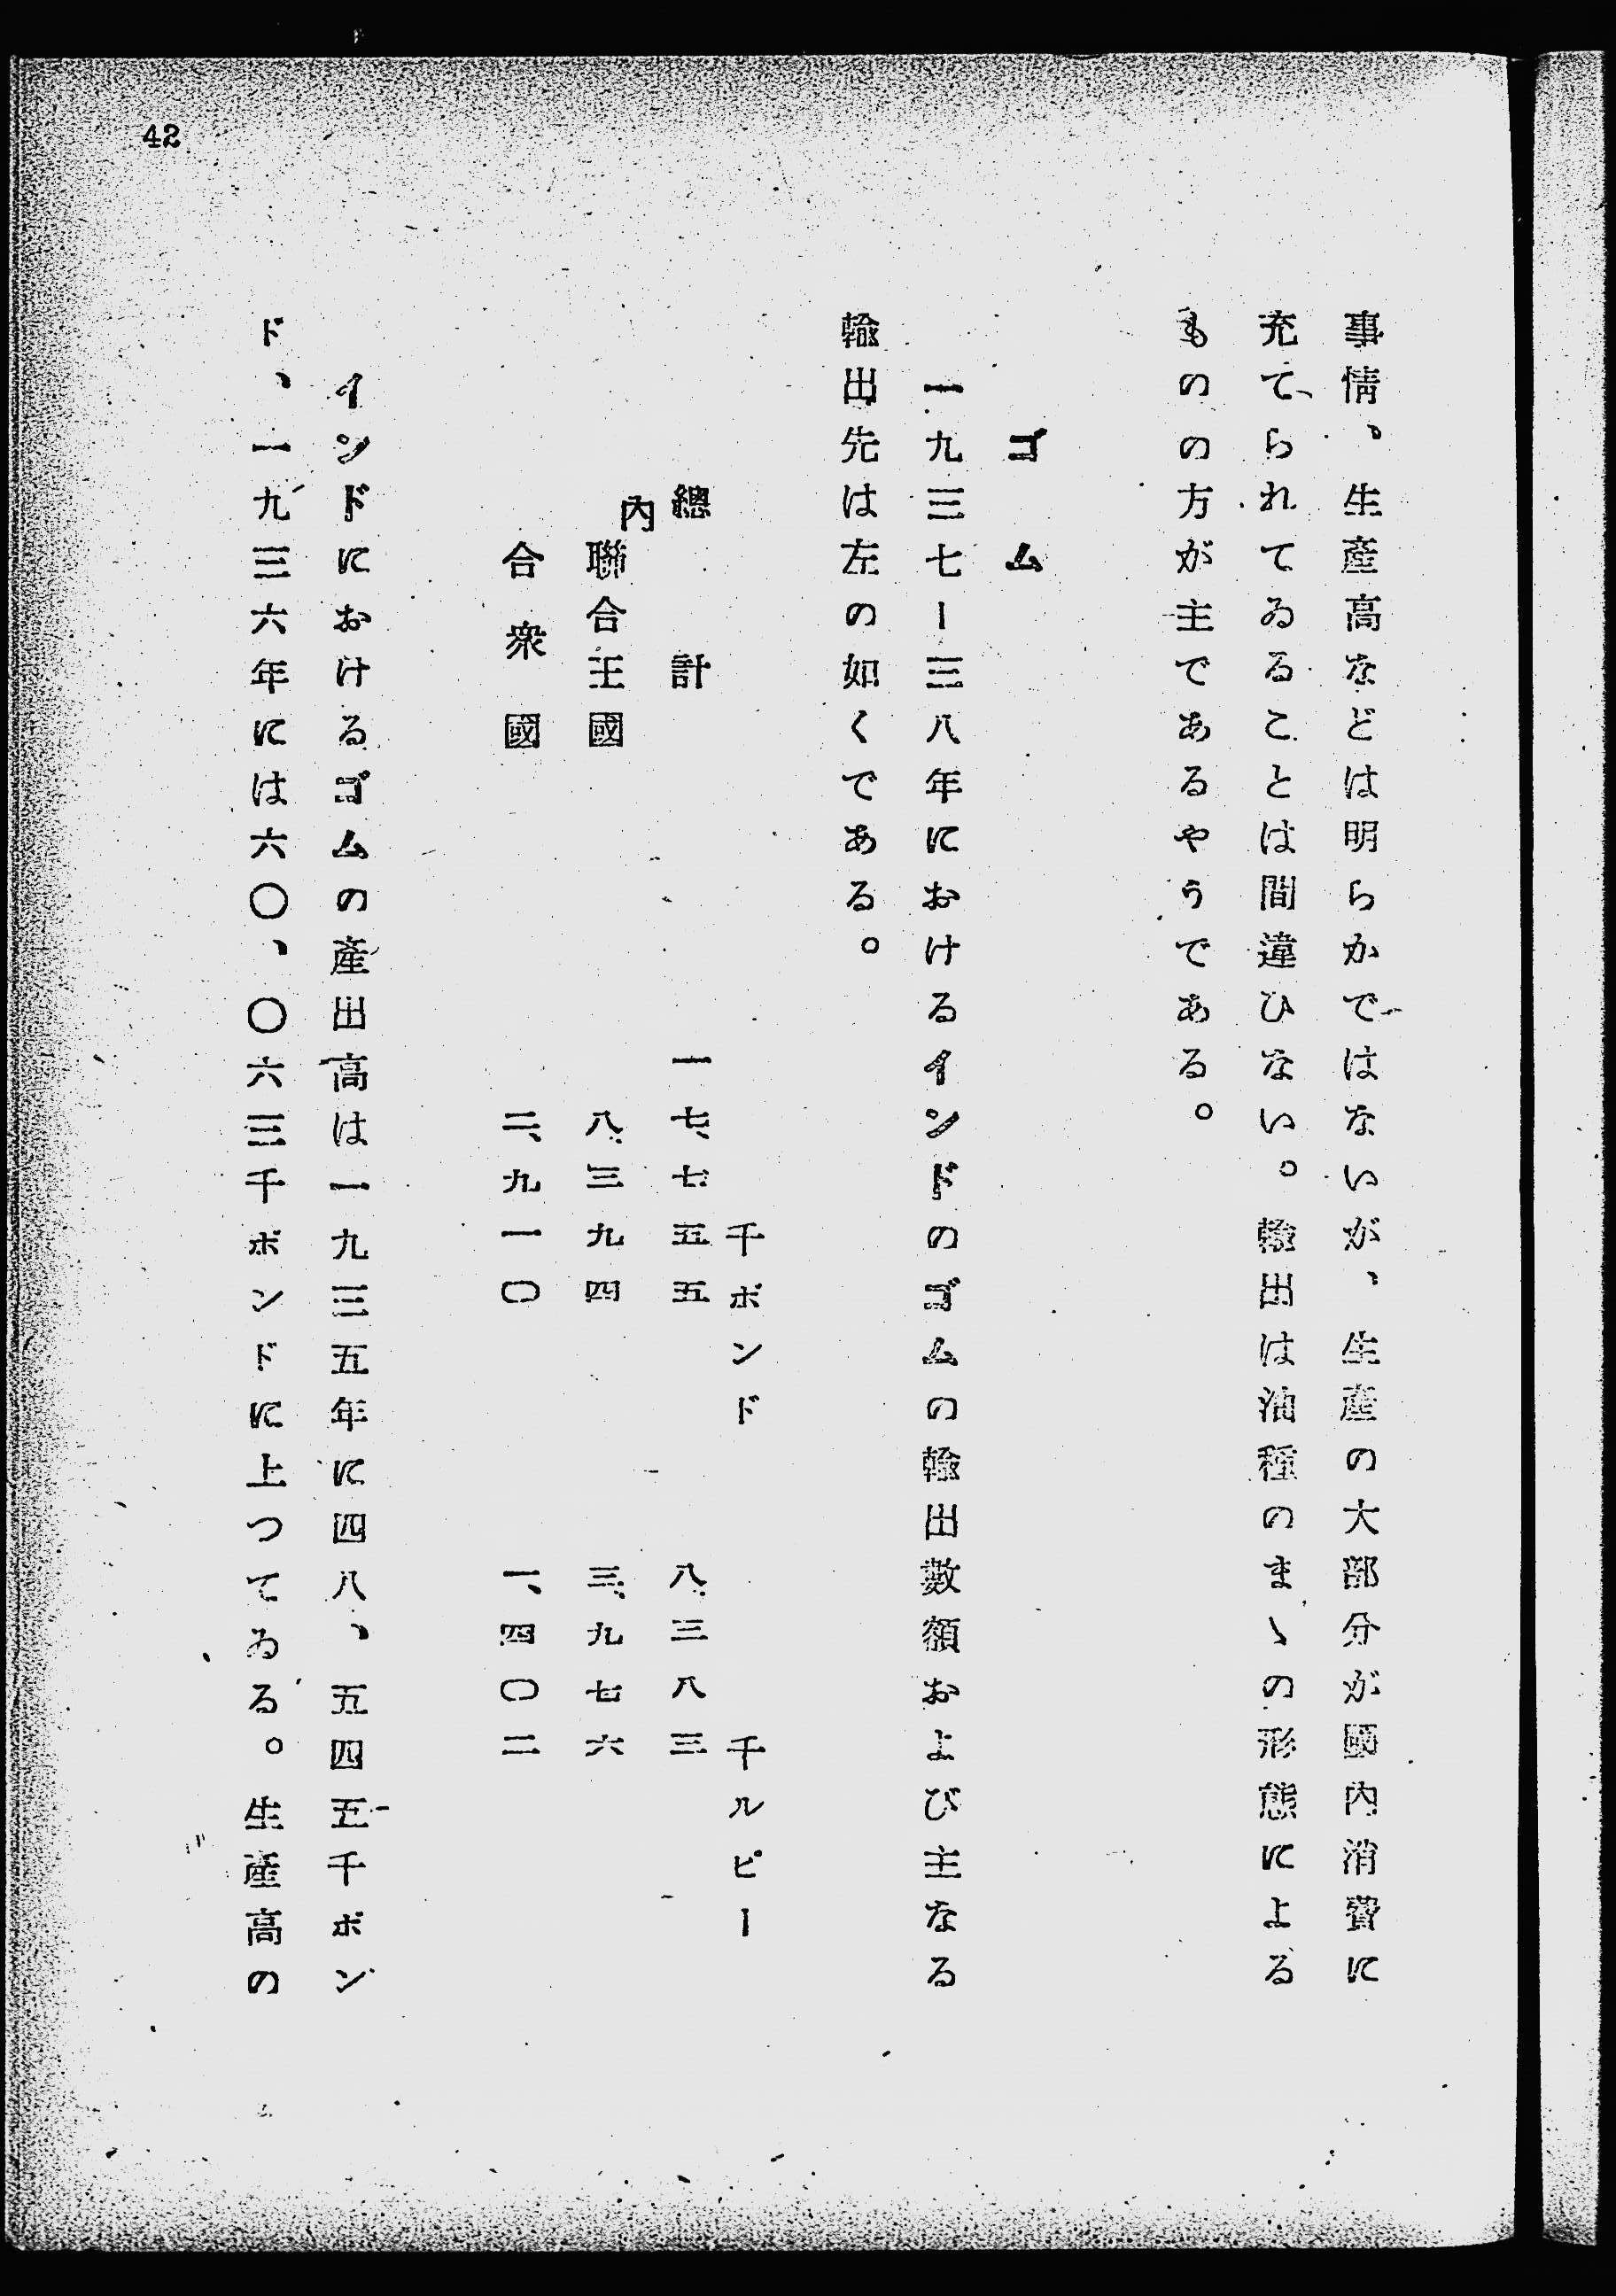 42
事情、生產高などは明らかではないが、生產の大部分が國內消費に
充てられてゐることは間違ひない。輸出は油種のまゝの形態による
ものの方が主であるやうである。
ゴム
一九三七ー三八年におけるインドのゴムの輸出數額および主なる
輸出先は左の如くである。
千ポンド 千ルピー
總計 一七、七五五 八、三八三
內
聯合王國 八、三九四 三、九七六
合衆國 二、九一〇 一、四〇二
インドにおけるゴムの產出高は一九三五年に四八、五四五千ポン
ド、一九三六年には六〇、〇六三千ポンドに上つてゐる。生產高の